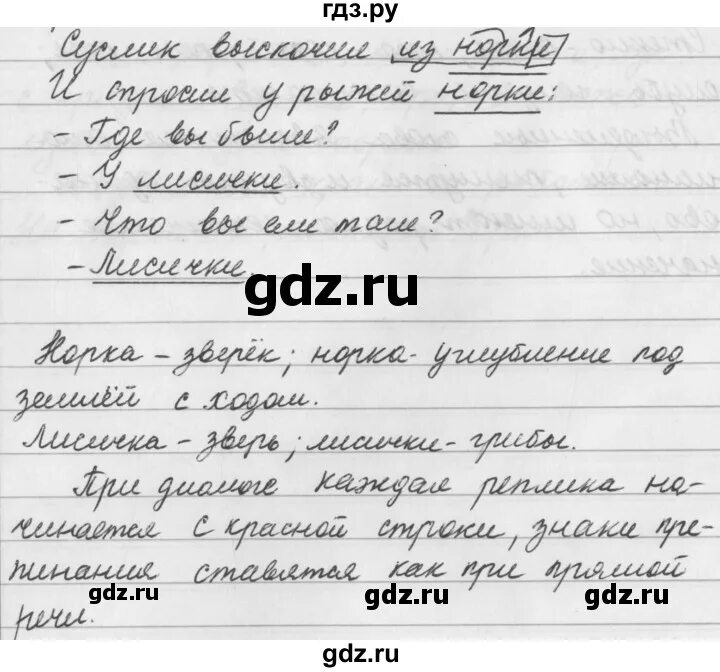 гдз.ру
Суслик выскочил из норки
И спросил у рыжей норки:
- Где вы были?
- У лисички.
- Что вы ели там?
- Лисички.
gdz.ru
Норка - зверёк; норка - углубление под
землёй с ходом.
Лисичка - зверь; лисички - грибы.
При диалоге каждая реплика на-
чинается с красной строки, знаки пре-
пинания ставятся как при прямой
gdz.ru gdz.ru
речи.
gdz.ru